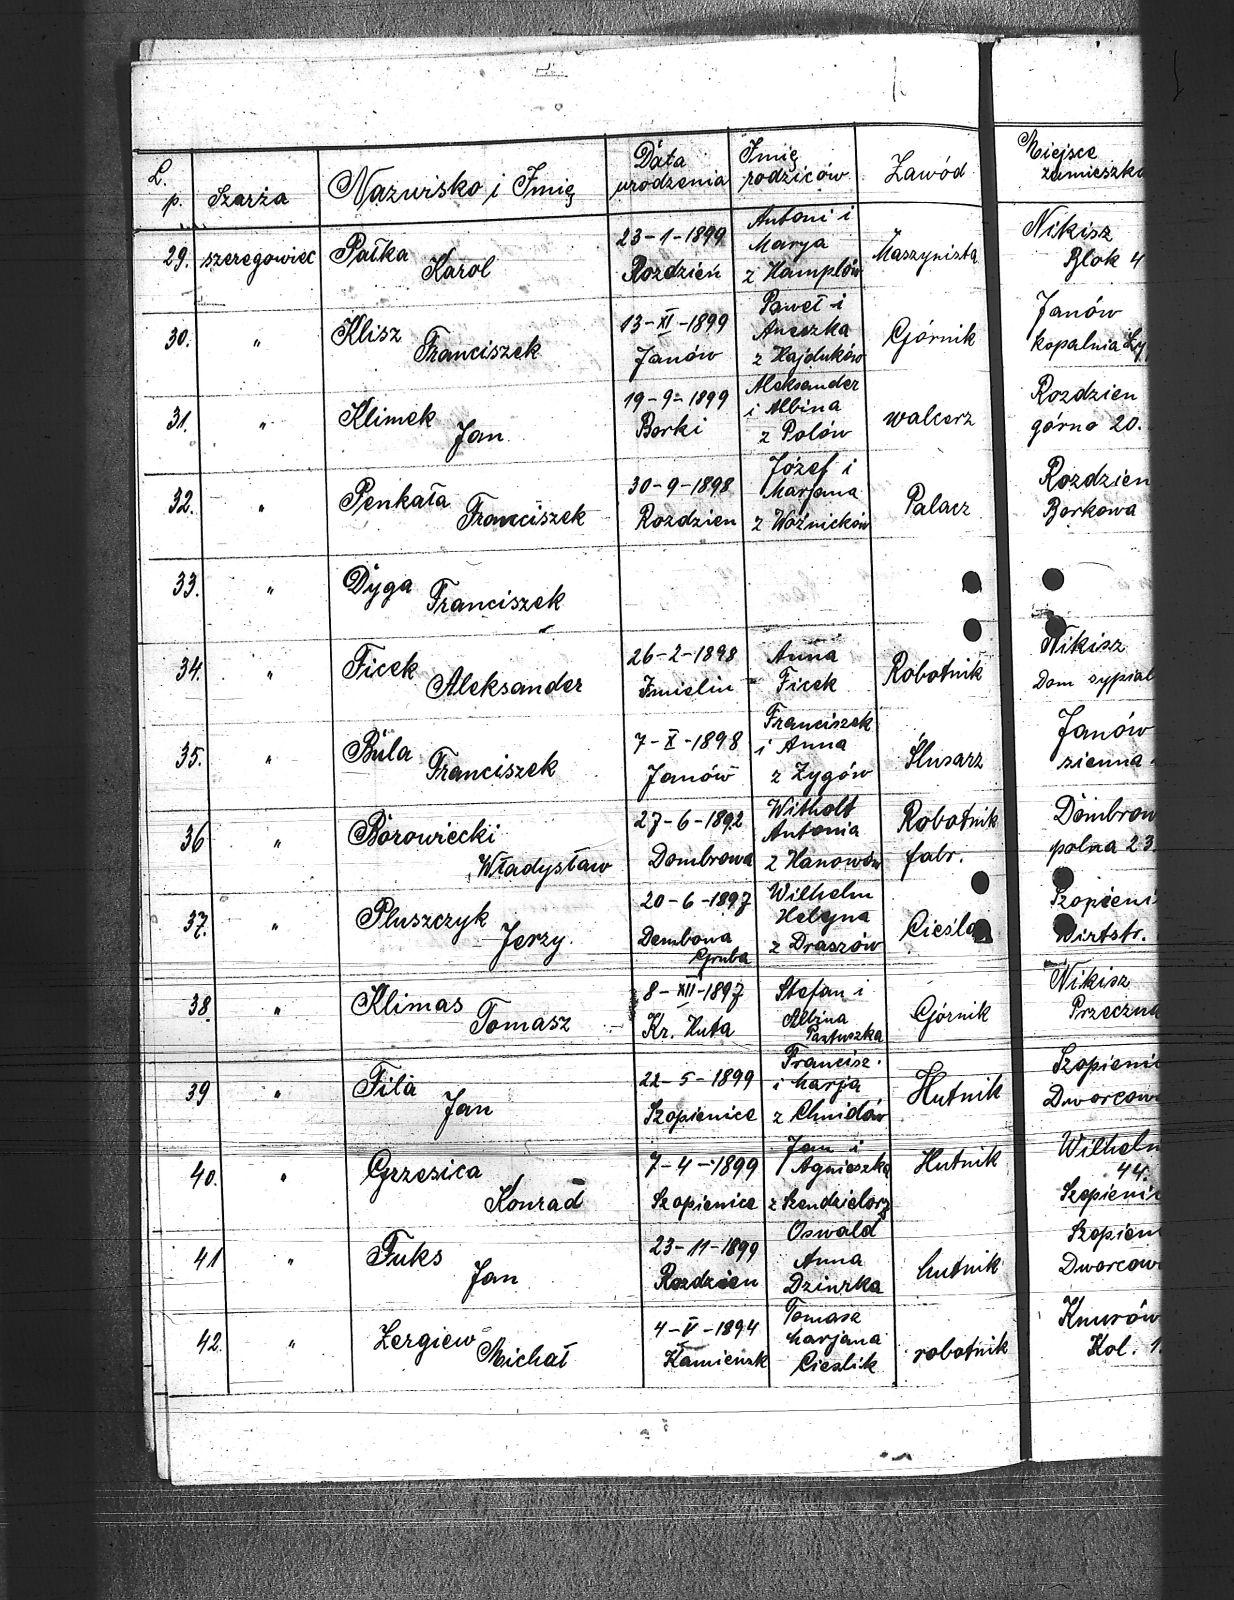 L. p. Szarża Nazwisko i Imię Data urodzenia Imię rodziców Zawód Miejsce zamieszka
29. szeregowiec Pałka Karol 23-1-1899 Rozdzień Antoni i Marya z Hamplów Maszynista Nikisz Blok 4
30. " Klisz Franciszek 13-XI-1899 Janów Paweł i z Hajduków Górnik Janów kopalnia
31. " Klimek Jan 19-9-1899 Borki Aleksander i Albina z Polów walcerz Rozdzien górno 20.
32. " Penkała Franciszek 30-9-1898 Rozdzien Józef i Marjana z Woźnicków Palacz Rozdzien Borkowa
33. " Dyga Franciszek
34. " Ficek Aleksander 26-2-1898 Imielin Anna Ficek Robotnik Nikisz Dom sypial
35. " Bula Franciszek 7-X-1898 Janów Franciszek i Anna z Zygów Ślusarz Janów sienna
36 " Borowiecki Władysław 27-6-1892 Dombrowa Witholt Antonia z Hanowów Robotnik fabr. Dombrow polna 23.
37. " Pluszczyk Jerzy. 20-6-1897 Dembowa Gruba Wilhelm Helena z Draszów Cieśla Szopieni Wirtstr.
38. " Klimas Tomasz 8-XII-1897 Kr. Huta Stefan i Albina Pastuszka Górnik Nikisz Przeczna
39 " Fila Jan 22-5-1899 Szopienice Francisz. i Marja z Chnidów Hutnik Szopieni Dworcow
40. " Grzesica Konrad 7-4-1899 Szopienice Jan i Agnieszka z Szendzielorz Hutnik Wilhelm 44. Szopieni
41 " Fuks Jan 23-11-1899 Rozdzien Oswald Anna Dziurka hutnik Szopieni Dworcow
42. " Zergiew Michał 4-V-1894 Kamiensk Tomasz Marjana Cieslik robotnik Knurów Kol. 1